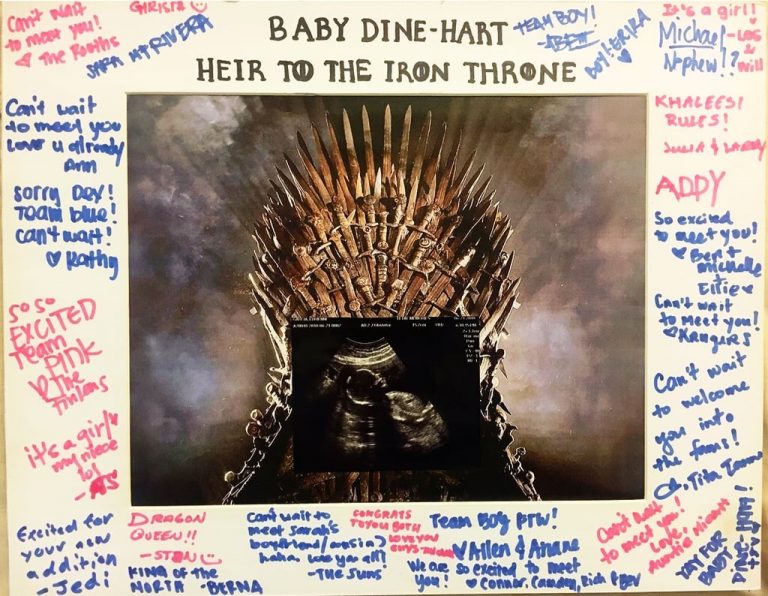 BABY DINE-HART
HEIR TO THE IRON THRONE
Can't wait
to meet you!
♡ The Rooths
CHRISTA
SARA M RIVERA
TEAM BOY!
BOY! ERIKA ♡
It's a girl!
Michael
Nephew!!?
- Les
&
Will
Can't wait
to meet you
Love u already
Ann
Sorry Dev!
Team blue!
Can't wait!
♡ Kathy
SO SO
EXCITED
TEAM
PINK
♡ The
Finlans
it's a girl!
my niece
lol
Excited for
your new
addition!
- Jedi
KHALEESI
RULES!
JULIA & LARRY
ADDY
So excited
to meet you!
♡ Bert
Michelle
+
Ellie
Can't wait
to meet you!
♡ Kangers
Can't wait
to welcome
you into
the fams!
Tita
DRAGON
QUEEN!!
- STAN
KING OF THE
NORTH - BERNA
Can't wait to
meet Sarah's
boyfriend/
haha. Love you all!
- THE SUNS
CONGRATS
TO YOU BOTH
LOVE YOU
GUYS
Team Boy FTW!
♡ Allen & Ariane
We are so excited to meet
you! ♡ Connor, Camden, Rich & Bev
Can't wait
to meet you!
Love,
Auntie
YAY FOR
BABY
DINE-HART!